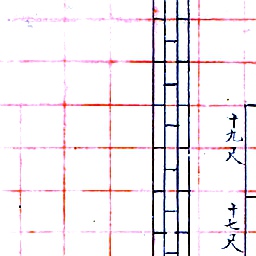 十九尺
十七尺